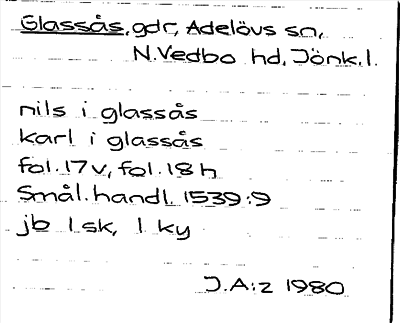 Glassås, gdr, Adelövs sn,
N.Vedbo hd, Jönk.l.
nils i glassås
karl i glassås
fol.17v, fol.18h
Smål.handl. 1539:9
jb 1 sk, 1 ky
J.A:z 1980